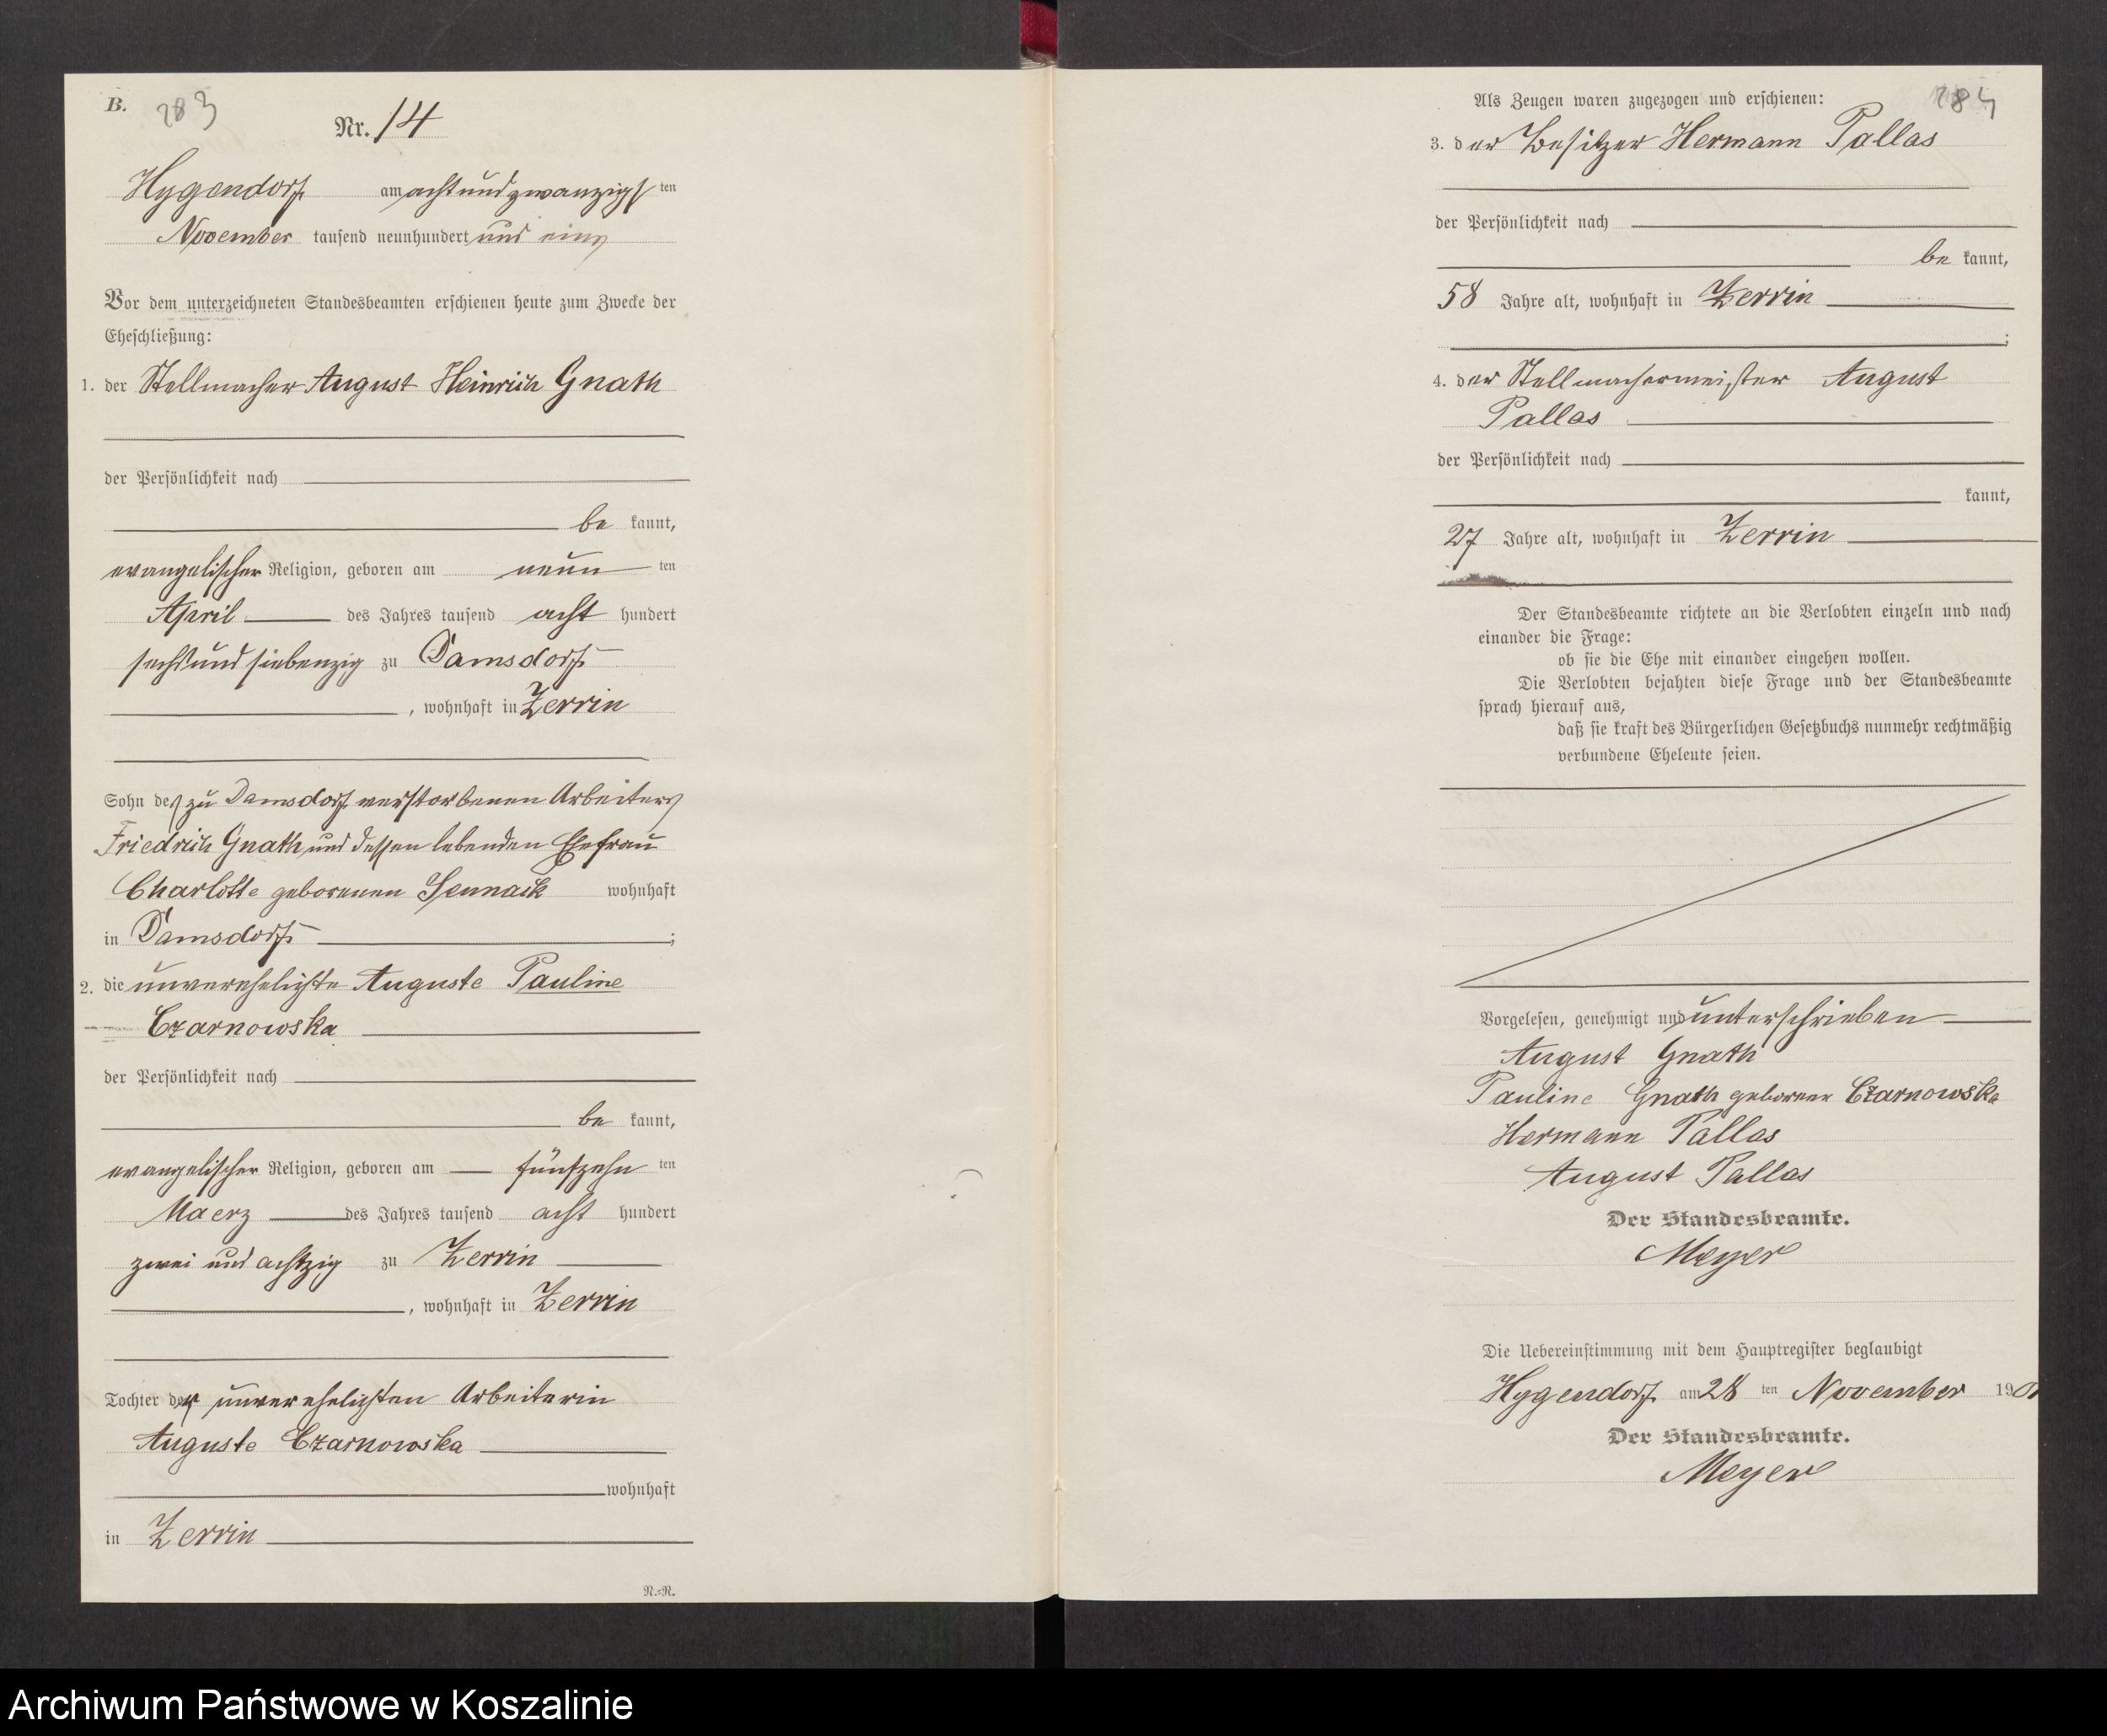 B. 283
Nr. 14
Hygendorf am achtundzwanzigsten
November tausend neunhundert und eins
Vor dem unterzeichneten Standesbeamten erschienen heute zum Zwecke der
Eheschließung:
1. der Stellmacher August Heinrich Gnath
der Persönlichkeit nach
be kannt,
evangelischer Religion, geboren am neun ten
April des Jahres tausend acht hundert
sechsundsiebenzig zu Damsdorf
, wohnhaft in Zerrin
Sohn des zu Damsdorf verstorbenen Arbeiters
Friedrich Gnath und dessen lebenden Ehefrau
Charlotte geborenen wohnhaft
in Damsdorf ;
2. die unverehelichte Auguste Pauline
Czarnowska
der Persönlichkeit nach
be kannt,
evangelischer Religion, geboren am fünfzehn ten
Maerz des Jahres tausend acht hundert
zwei und achtzig zu Zerrin
, wohnhaft in Zerrin
Tochter der unverehelichten Arbeiterin
Auguste Czarnowska
wohnhaft
in Zerrin
N.=R.
284
Als Zeugen waren zugezogen und erschienen:
3. der Besitzer Hermann Pallas
der Persönlichkeit nach
be kannt,
58 Jahre alt, wohnhaft in Zerrin
;
4. der Stellmachermeister August
Pallas
der Persönlichkeit nach
kannt,
27 Jahre alt, wohnhaft in Zerrin
Der Standesbeamte richtete an die Verlobten einzeln und nach
einander die Frage:
ob sie die Ehe mit einander eingehen wollen.
Die Verlobten bejahten diese Frage und der Standesbeamte
sprach hierauf aus,
daß sie kraft des Bürgerlichen Gesetzbuchs nunmehr rechtmäßig
verbundene Eheleute seien.
Vorgelesen, genehmigt und unterschrieben
August Gnath
Pauline Gnath geborene Czarnowska
Hermann Pallas
August Pallas
Der Standesbeamte.
Meyer
Die Uebereinstimmung mit dem Hauptregister beglaubigt
Hygendorf am 28 ten November 1901
Der Standesbeamte.
Meyer
Archiwum Państwowe w Koszalinie